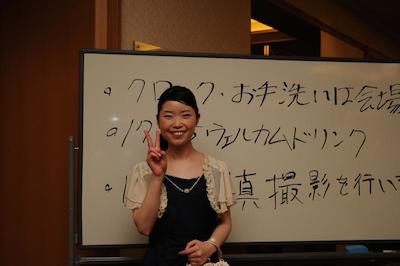 ・クローク・お手洗いは会場
ウェルカムドリンク
真撮影を行い